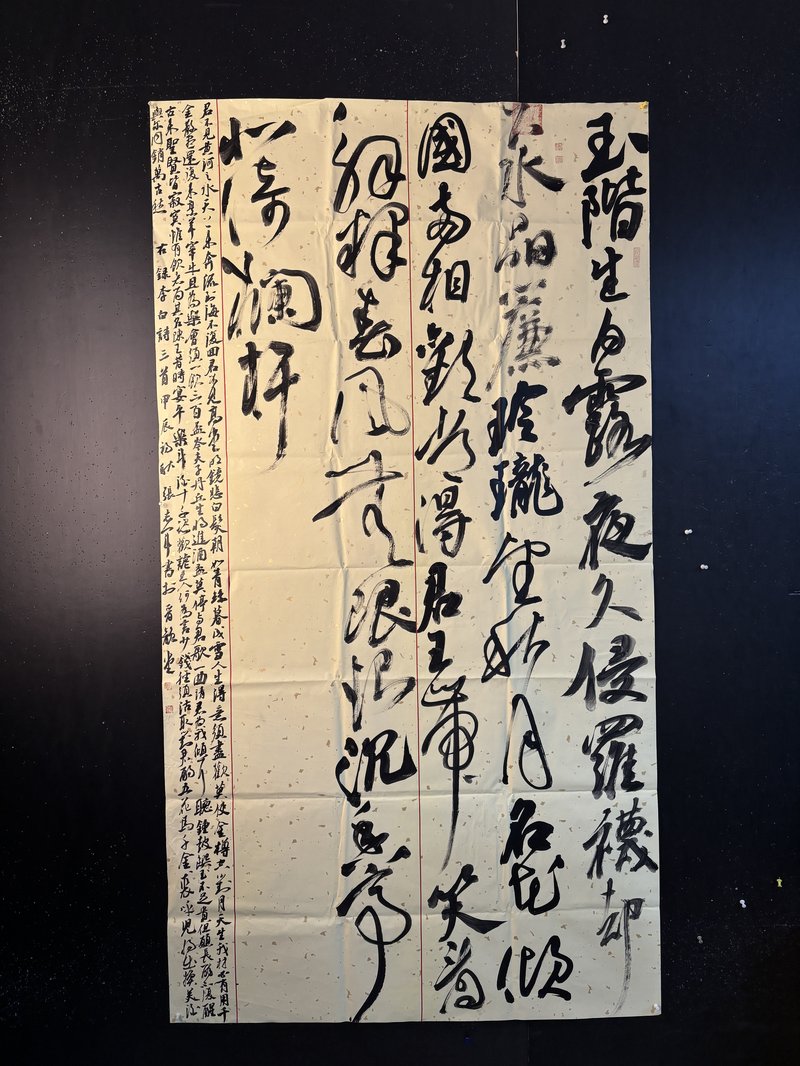 玉階生白露夜久侵羅襪却
下水晶簾玲瓏望秋月名花傾
國兩相歡常得君王帶笑看
解釋春風無限恨沉香亭
北倚欄杆
君不見黃河之水天上來奔流到海不復回君不見高堂明鏡悲白髮朝如青絲暮成雪人生得意須盡歡莫使金樽空對月天生我材必有用千
金散盡還復來烹羊宰牛且為樂會須一飲三百盃岑夫子丹丘生將進酒盃莫停與君歌一曲請君為我傾耳聽鐘鼓饌玉不足貴但願長醉不復醒
古來聖賢皆寂寞惟有飲者留其名陳王昔時宴平樂斗酒十千恣歡謔主人何為言少錢徑須沽取對君酌五花馬千金裘呼兒將出換美酒
與尔同銷萬古愁 右録李白詩三首甲辰初秋張志書於龍堂